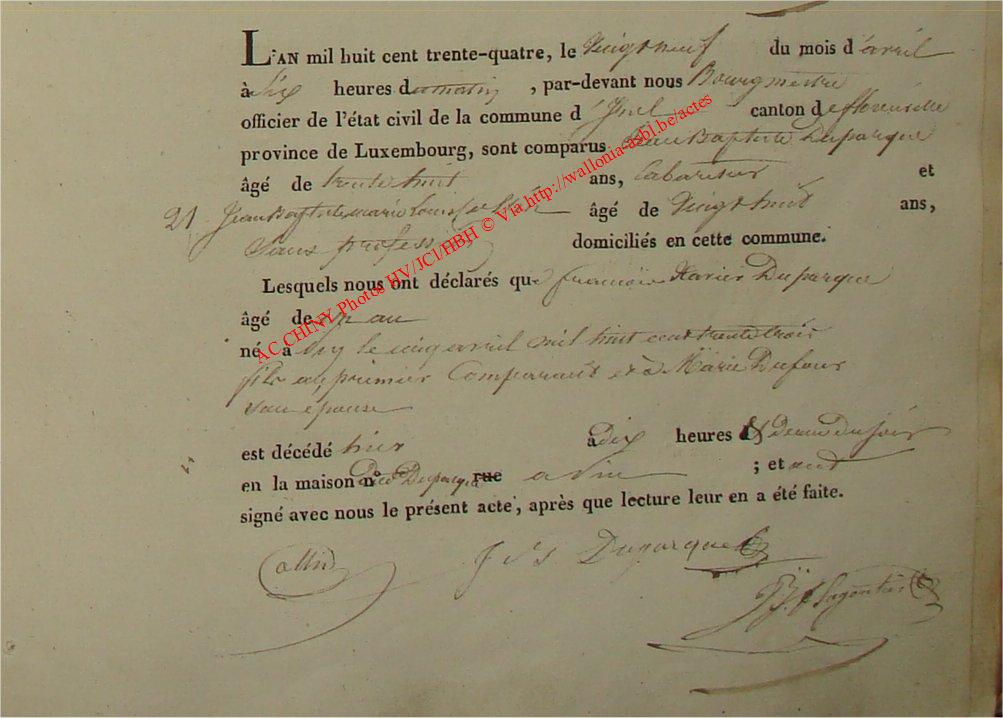 L'AN mil huit cent trente-quatre, le vingt neuf du mois d'avril
à six heures du matin, par-devant nous Bourgmestre
officier de l'état civil de la commune d canton de florenville
province de Luxembourg, sont comparus Jean Baptiste Duparque
âgé de trente huit ans, cabaretier et
21 Jean Baptiste marie Louis Collin âgé de vingt huit ans,
Sans profess domiciliés en cette commune.
Lesquels nous ont déclarés que francois Xavier Duparque
âgé de un an
né à le cinq avril mil huit cent trente trois
fils au premier Comparant et à Marie Dufour
son epouse
est décédé hier à dix heures & demie du soir
en la maison n° dud Duparque rue ; et ont
signé avec nous le présent acte, après que lecture leur en a été faite.
Collin J Duparque
AC CHINY Photos HV/JCl/HBH © Via http://wallonia-asbl.be/actes